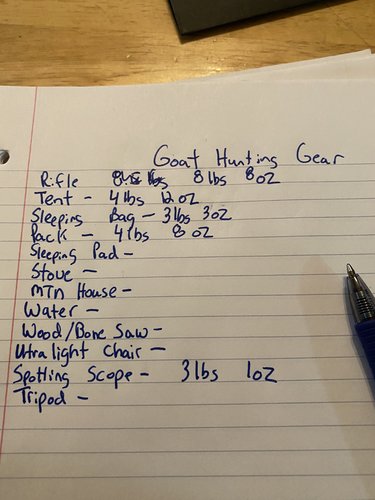 Goat Hunting Gear
Rifle 8.5 lbs 8 lbs 8 oz
Tent - 4 lbs 12 oz
Sleeping Bag - 3 lbs 3 oz
Pack - 4 lbs 8 oz
Sleeping Pad -
Stove -
MTN House -
Water -
Wood/Bone Saw -
Ultra light Chair -
Spotting Scope - 3 lbs 1 oz
Tripod -